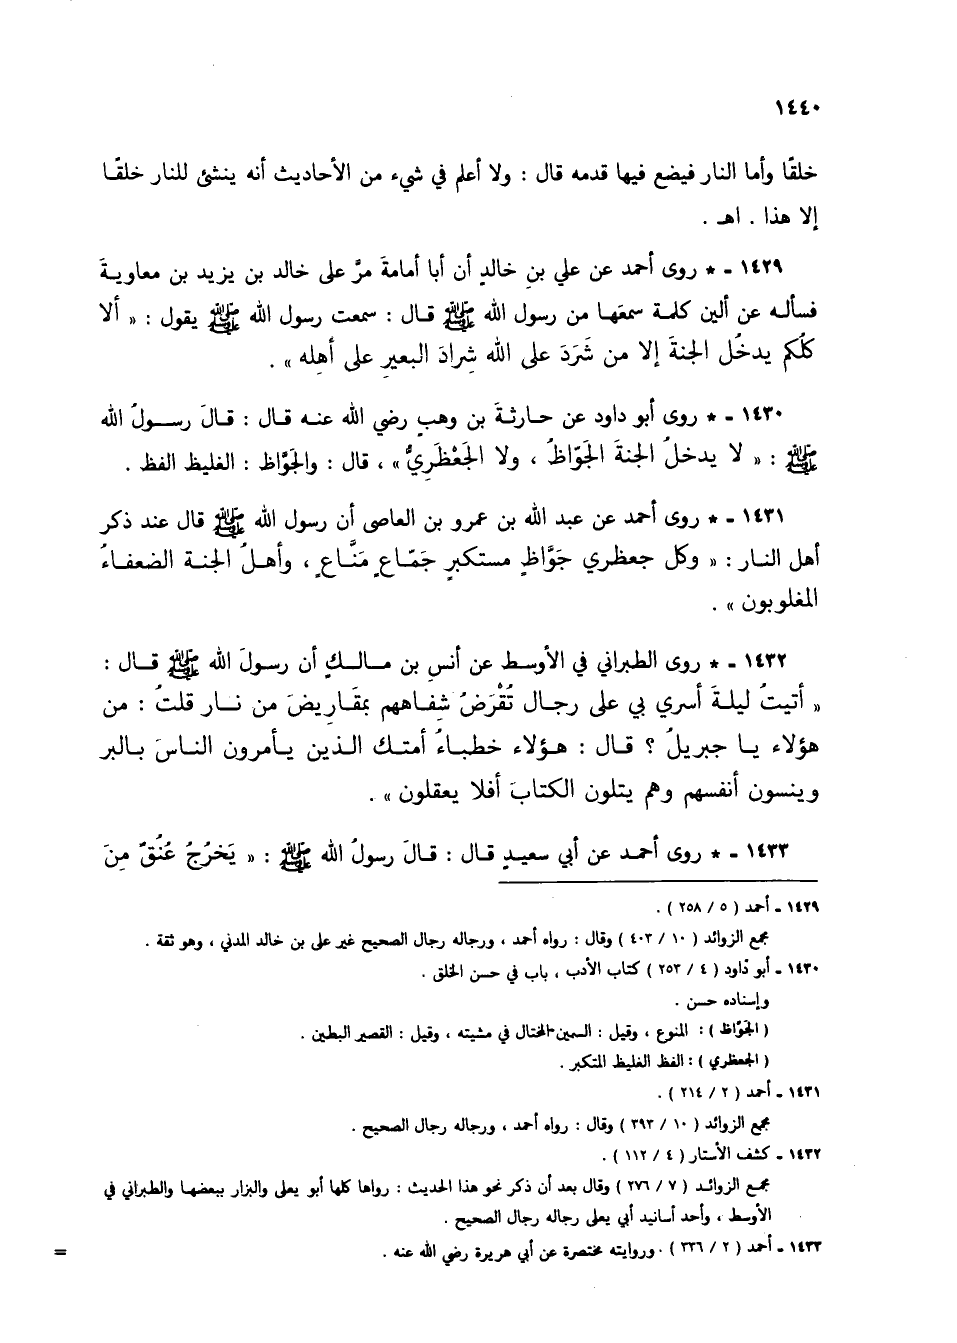 ١٤٤٠
خلقًا وأما النار فيضع فيها قدمه قال : ولا أعلم في شيء من الأحاديث أنه ينشئ للنار خلقًا
إلا هذا . اهـ .
١٤٢٩ - * روى أحمد عن علي بنِ خالدٍ أن أبا أمامةَ مرَّ على خالد بن يزيد بن معاوية
فسأله عن ألين كلمة سمعَها من رسول الله ﷺ قال : سمعت رسول الله ﷺ يقول : « ألا
كلُكم يدخُل الجنةَ إلا من شَرَدَ على الله شِرادَ البعيرِ على أهلِه » .
١٤٣٠ - * روى أبو داود عن حارثةَ بن وهبٍ رضي الله عنه قال : قالَ رسولُ الله
ﷺ : « لا يدخلُ الجنةَ الجَوّاظُ ، ولا الجَعْظَرِيُّ » ، قال : والجَوَّاظ : الغليظ الفظ .
١٤٣١ - * روى أحمد عن عبد الله بن عمرو بن العاصى أن رسول الله ﷺ قال عند ذكر
أهل النار : « وكل جعظري جَوَّاظٍ مستكبرٍ جَمّاعٍ مَنَّاعٍ ، وأهلُ الجنة الضعفاءُ
المغلوبون » .
١٤٣٢ - * روى الطبراني في الأوسط عن أنسِ بن مالكٍ أن رسولَ الله ﷺ قال :
« أتيتُ ليلةَ أسري بي على رجال تُقْرَضُ شِفاههم بمَقَاريضَ من نار قلتُ : من
هؤلاء يا جبريلُ ؟ قال : هؤلاء خطباءُ أمتك الذين يأمرون الناسَ بالبر
وينسون أنفسهم وهم يتلون الكتابَ أفلا يعقلون » .
١٤٣٣ - * روى أحمد عن أبي سعيدٍ قال : قالَ رسولُ الله ﷺ : « يَخرُجُ عُنُقٌ مِنَ
١٤٢٩ - أحمد ( ٥ / ٢٥٨ ) .
مجمع الزوائد ( ١٠ / ٤٠٣ ) وقال : رواه أحمد ، ورجاله رجال الصحيح غير على بن خالد المدني ، وهو ثقة .
١٤٣٠ - أبو داود ( ٤ / ٢٥٣ ) كتاب الأدب ، باب في حسن الخلق .
وإسناده حسن .
( الجَوَّاظ ) : المنوع ، وقيل : السمين المختال في مشيته ، وقيل : القصير البطين .
( الجعظري ) : الفظ الغليظ المتكبر .
١٤٣١ - أحمد ( ٢ / ٢١٤ ) .
مجمع الزوائد ( ١٠ / ٣٩٣ ) وقال : رواه أحمد ، ورجاله رجال الصحيح .
١٤٣٢ - كشف الأستار ( ٤ / ١١٢ ) .
مجمع الزوائد ( ٧ / ٢٧٦ ) وقال بعد أن ذكر نحو هذا الحديث : رواها كلها أبو يعلى والبزار ببعضها والطبراني في
الأوسط ، وأحد أسانيد أبي يعلى رجاله رجال الصحيح .
١٤٣٣ - أحمد ( ٢ / ٣٣٦ ) . وروايته مختصرة عن أبي هريرة رضي الله عنه .
=